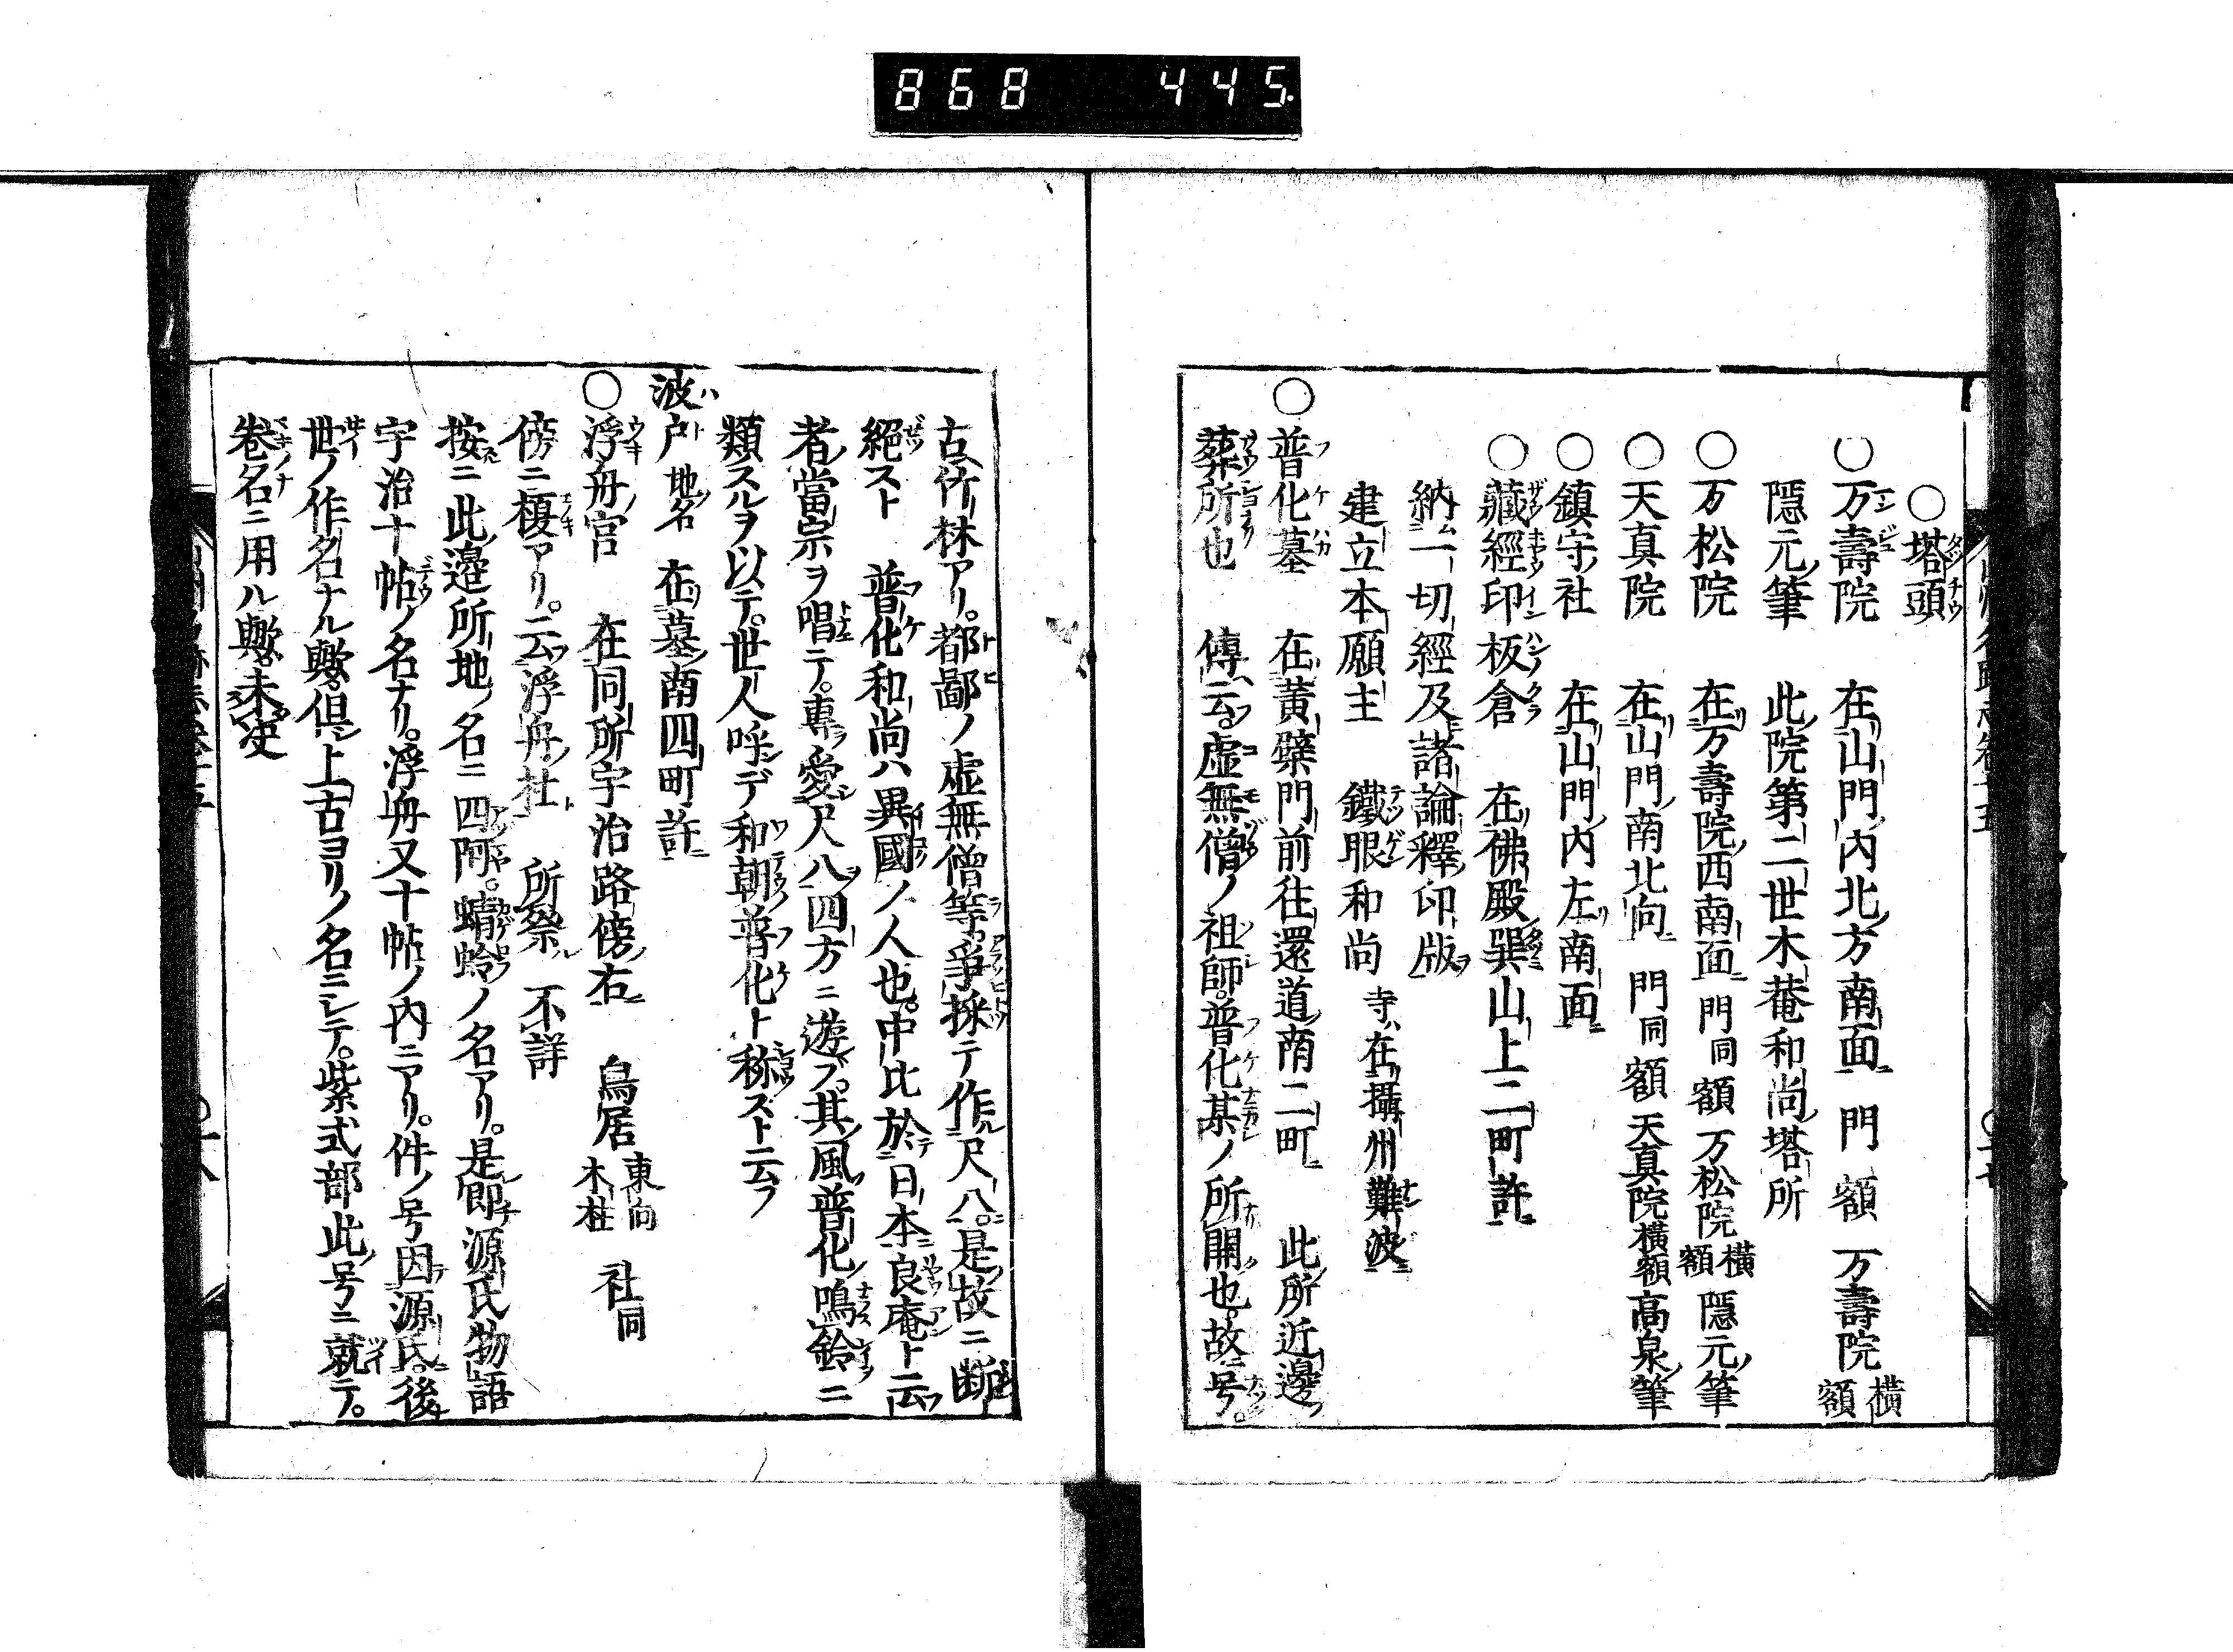 868 445.
○塔頭
○万壽院 在山門内北方南面 門 額 万壽院横額
隠元筆 此院第二世木菴和尚塔所
○万松院 在万壽院西南面 門同 額 万松院横額 隠元筆
○天真院 在山門南北向 門同 額 天真院横額 高泉筆
○鎮守社 在山門内左南面
○藏經印板倉 在佛殿巽山上二町許
納一切經及諸論釋印版
建立本願主 鐵眼和尚 寺在攝州難波
○普化墓 在黄檗門前往還道南二町 此所近邊
葬所也 傳云虚無僧ノ祖師。普化某ノ所開也。故号。
古竹林アリ。都鄙ノ虚無僧等爭採テ作尺八。是故ニ断
絕スト 普化和尚ハ異國ノ人也。中比於日本良庵ト云
者當宗ヲ唱テ。專愛尺八四方ニ遊ブ。其風普化鳴鈴ニ
類スルヲ以テ。世人呼デ和朝普化ト称スト云フ
波戸 地名 在墓南四町許
○浮舟宮 在同所宇治路傍右 鳥居 東向木柱 社同
傍ニ榎アリ。云浮舟社 所祭 不詳
按ニ此邉所地ノ名ニ四阿。蜻蛉ノ名アリ。是即源氏物語
宇治十帖ノ名ナリ。浮舟又十帖ノ内ニアリ。件ノ号因源氏後
世ノ作名ナル歟。但上古ヨリノ名ニシテ。紫式部此号ニ就テ。
巻名ニ用ル歟。未決